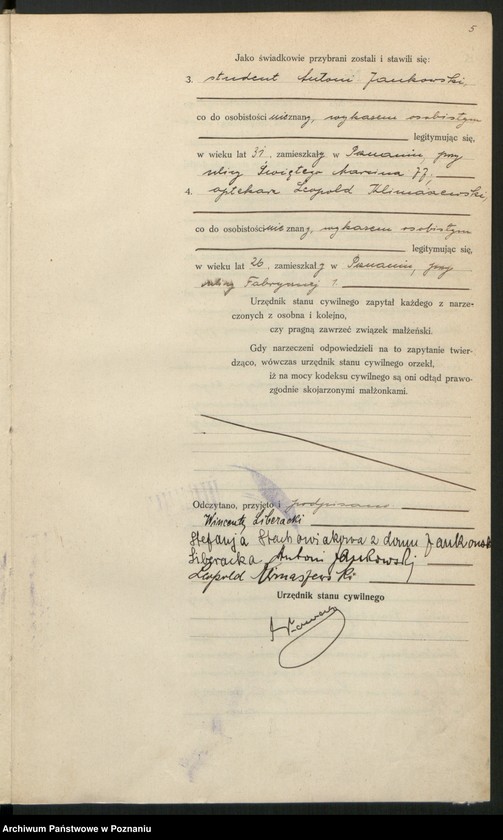 5
Jako świadkowie przybrani zostali i stawili się:
3. student Antoni Jankowski,
co do osobistości nieznany, wykazem osobistym
legitymując się,
w wieku lat 31, zamieszkały w Poznaniu, przy
ulicy Świętego Marcina 77,
4. aptekarz Leopold Klimaszewski,
co do osobistości nie znany, wykazem osobistym
legitymując się,
w wieku lat 26, zamieszkały w Poznaniu, przy
ulicy Fabrycznej 1.
Urzędnik stanu cywilnego zapytał każdego z narze-
czonych z osobna i kolejno,
czy pragną zawrzeć związek małżeński.
Gdy narzeczeni odpowiedzieli na to zapytanie twier-
dząco, wówczas urzędnik stanu cywilnego orzekł,
iż na mocy kodeksu cywilnego są oni odtąd prawo-
zgodnie skojarzonymi małżonkami.
Odczytano, przyjęto i podpisano
Wincenty Liberacki
Stefanja Stachowiakowa z domu Jankowska
Liberacka Antoni Jankowski
Leopold
Urzędnik stanu cywilnego
Archiwum Państwowe w Poznaniu